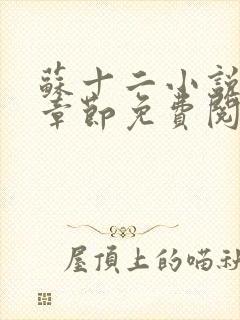 蘇十二小說
章節免費閱
屋頂上的喵社